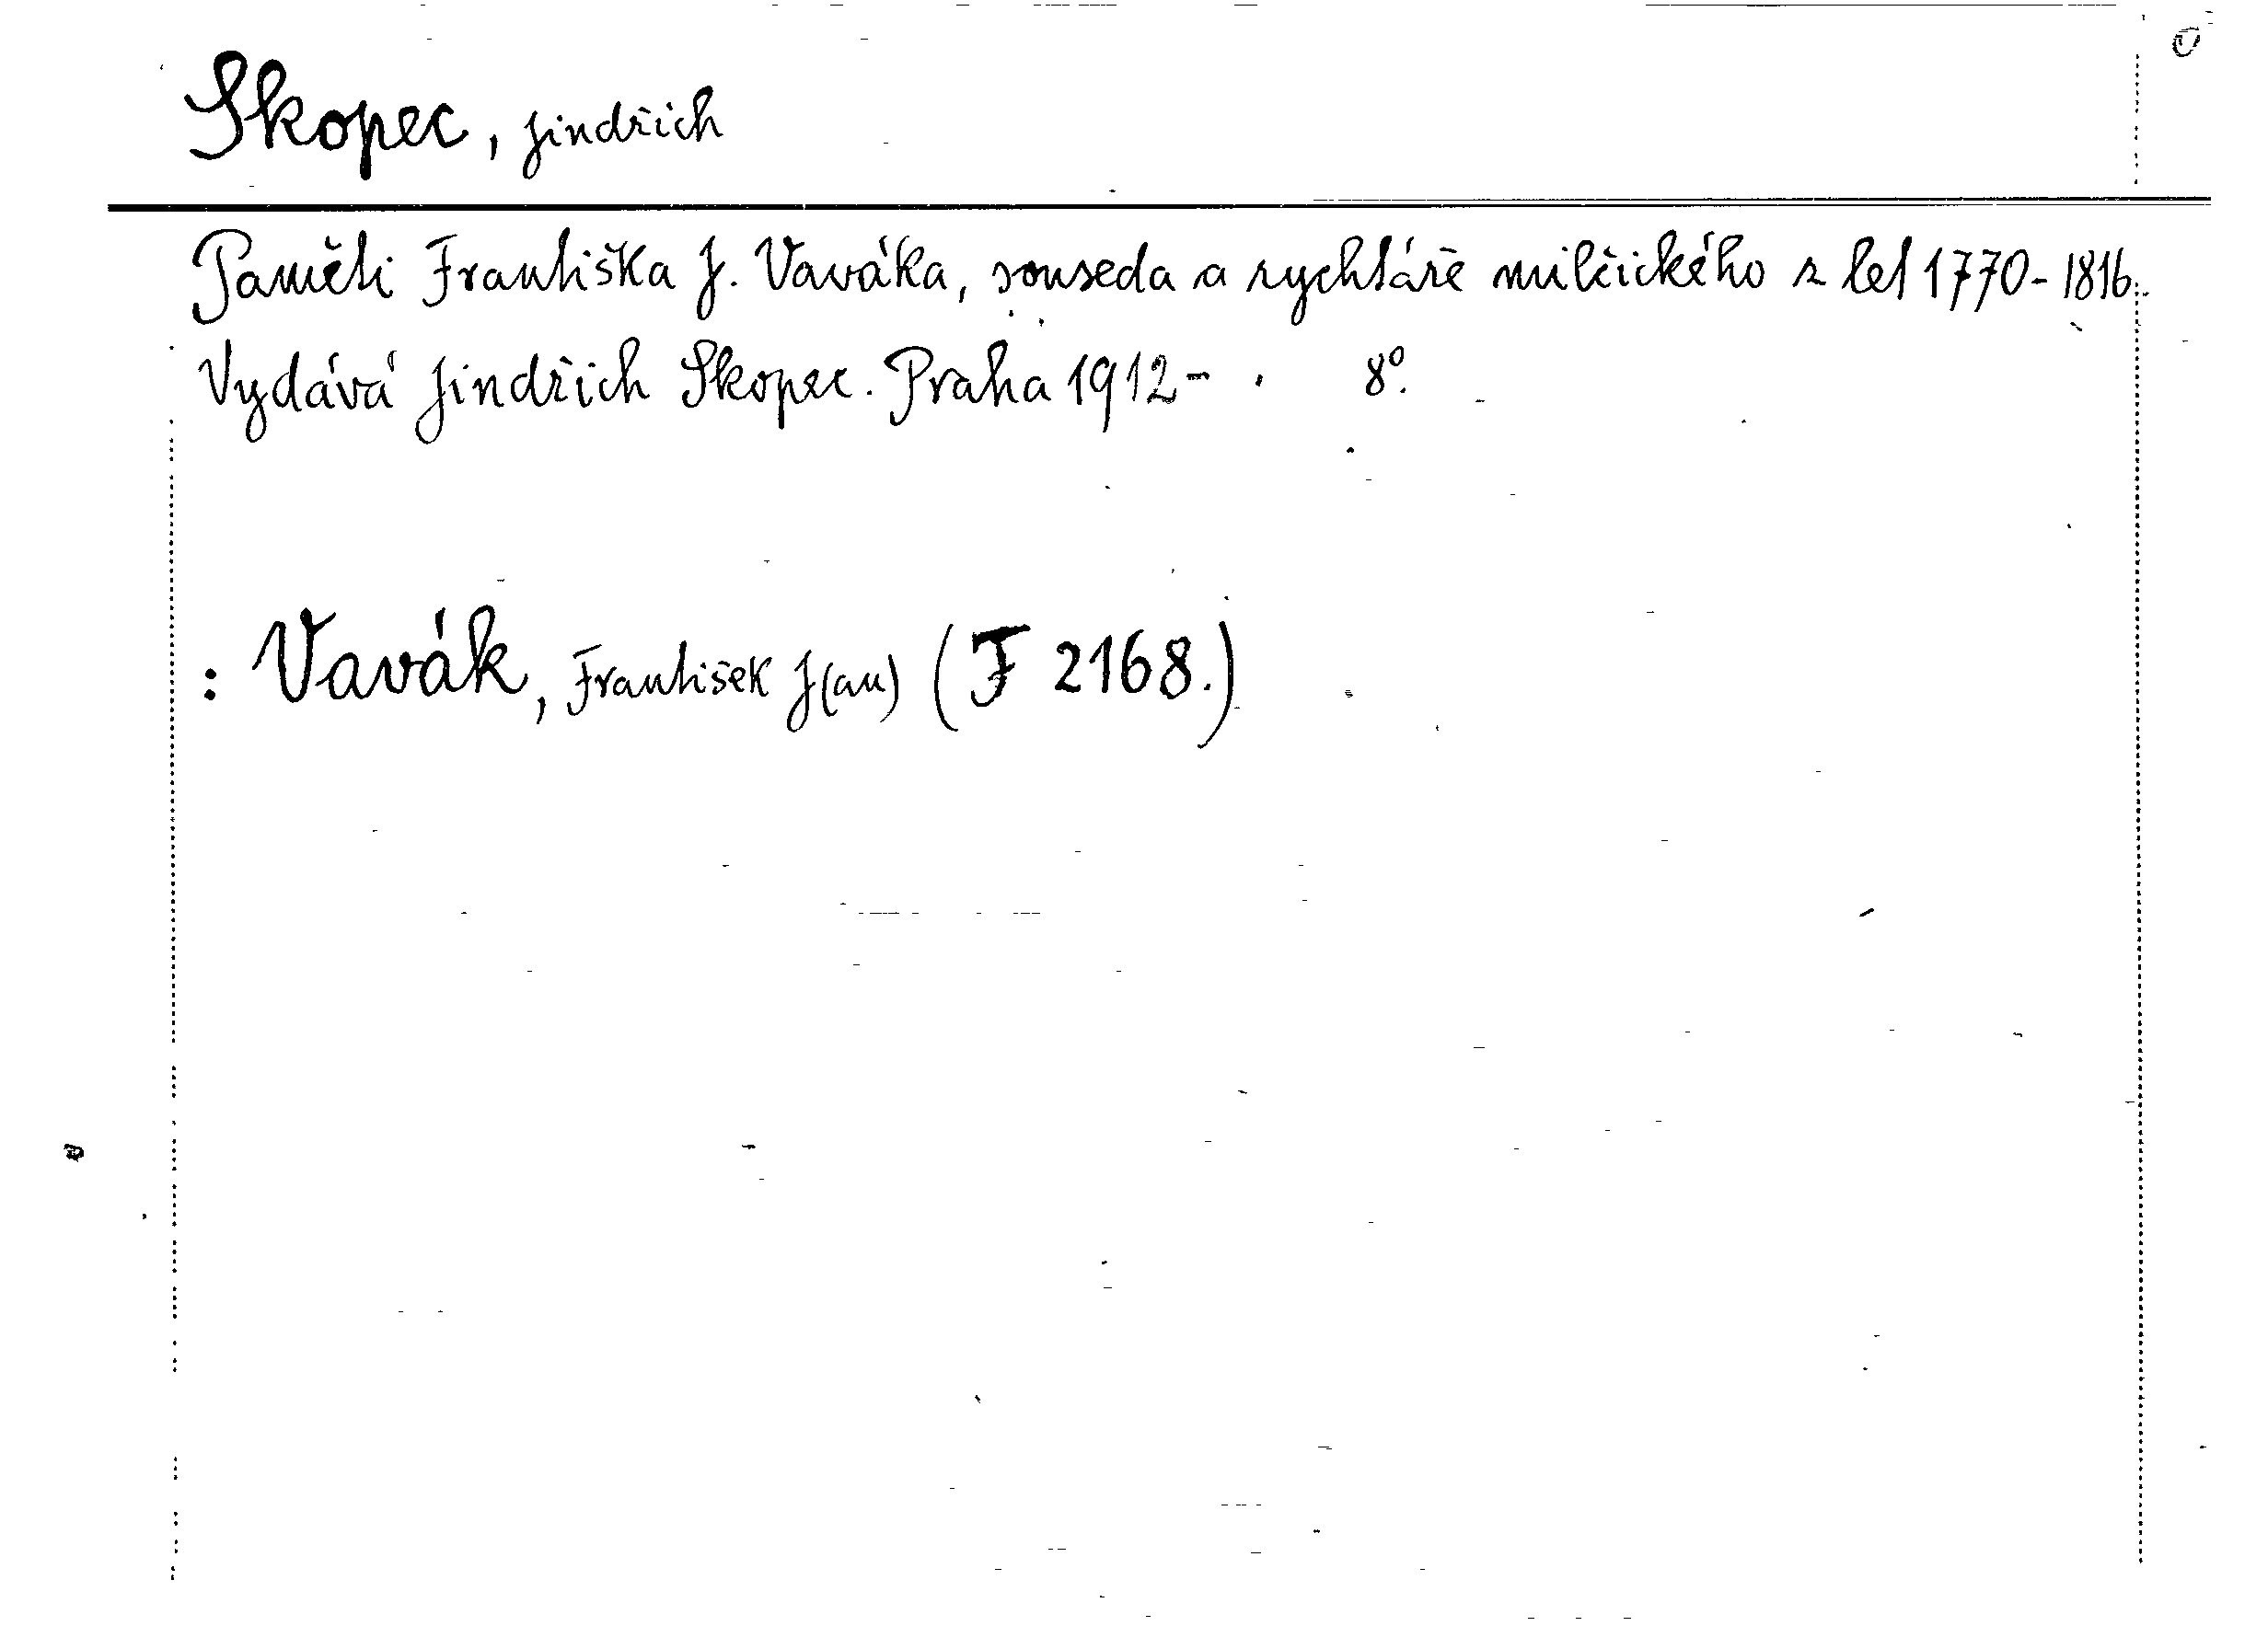 Skopec, Jindřich
Paměti Františka J. Vaváka, souseda a rychtáře milčického z let 1770-1816.
Vydává Jindřich Skopec. Praha 1912- . 8°.
: Vavák, František J(an) (F 2168.)